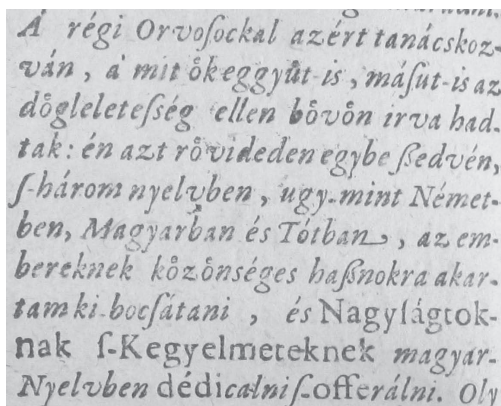 Á régi Orvoſockal azért tanácskoz-
ván, á mit ők eggyűt-is, máſut-is az
dőgleleteſség ellen bővőn irva had-
tak: én azt rővideden egybe ßedvén,
ſ-három nyelvben, ugy-mint Német-
ben, Magyarban és Tótban, az em-
bereknek kőzőnséges haßnokra akar-
tam ki-bocſátani, és Nagyſágtok-
nak ſ-Kegyelmeteknek magyar-
Nyelvben dédicalni ſ-offerálni. Oly